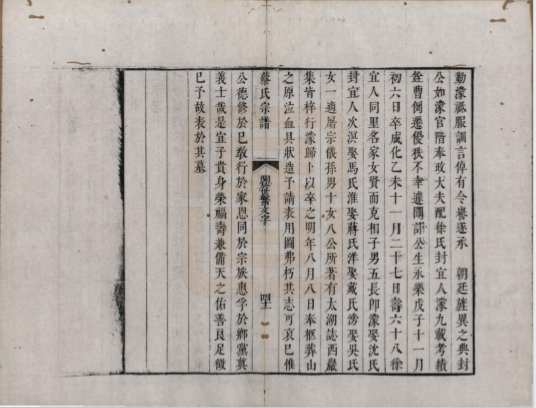 勤濛祗服訓言倬有令譽遂承　朝廷旌異之典封
公如濛官階奉政大夫配徐氏封宜人濛九載考績
銓曹倒悉優秩不幸遽聞訃公生永樂戊子十一月
初六日卒成化乙未十一月二十七日壽六十八徐
宜人同里名家女賢而克相子男五長即濛娶沈氏
封宜人次溟娶馬氏淮娶蔣氏洋娶戴氏滂娶吳氏
女一適屠宗儀孫男十女八公所著有太湖誌西巖
集肯梓行濛歸卜以卒之明年八月八日奉柩葬山
之原泣血具狀造予請表用圖弗朽其志可哀已惟
蔡氏宗譜
四七
公德修於已教行於家恩同於宗族惠孚於鄉黨眞
義士哉是宜子貴身榮福壽兼備天之佑善良足徵
已予故表於其墓